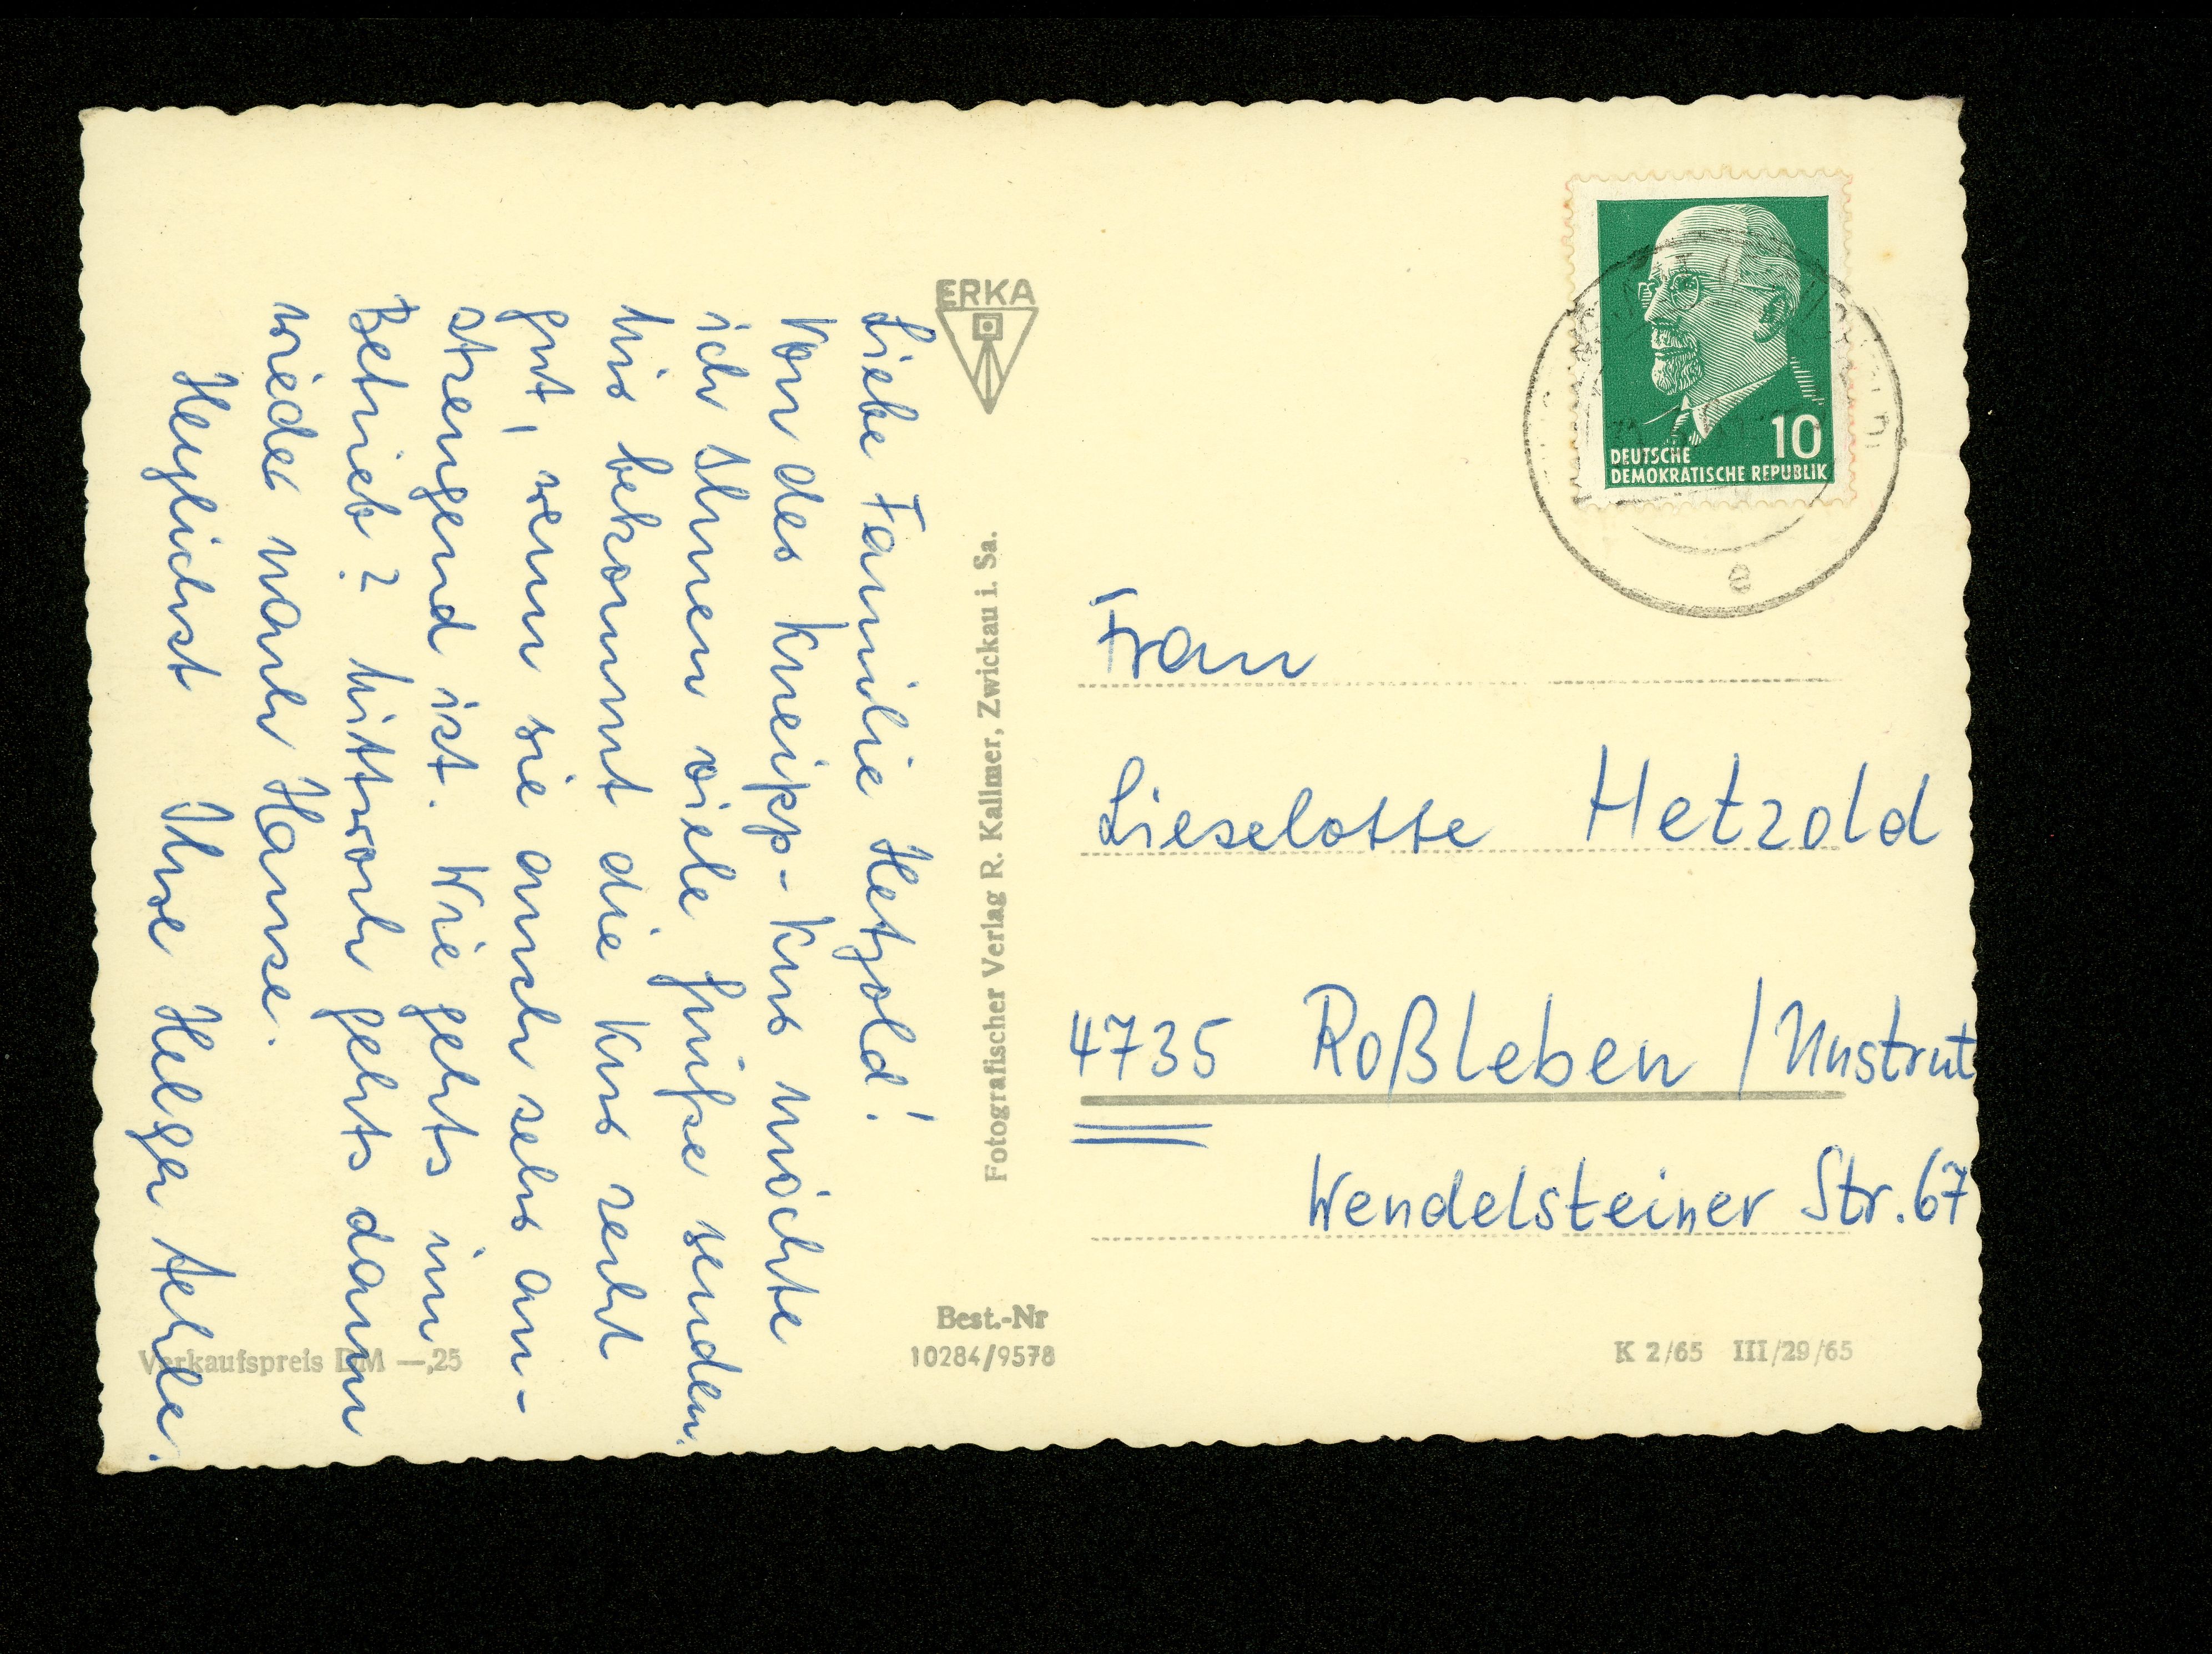 Liebe Familie Hetzold!
Von der Kneipp-Kur möchte
ich Ihnen viele Grüße senden.
Mir bekommt die Kur recht
gut, wenn sie auch sehr an-
strengend ist. Wie gehts im
Betrieb? Mittwoch gehts dann
wieder nach Hause.
Herzlichst Ihre Helga
Verkaufspreis DM —,25
ERKA
Fotografischer Verlag R. Kallmer, Zwickau i. Sa.
Best.-Nr
10284/9578
10
DEUTSCHE
DEMOKRATISCHE REPUBLIK
e
Frau
Lieselotte Hetzold
4735 Roßleben / Unstrut
Wendelsteiner Str. 67
K 2/65 III/29/65